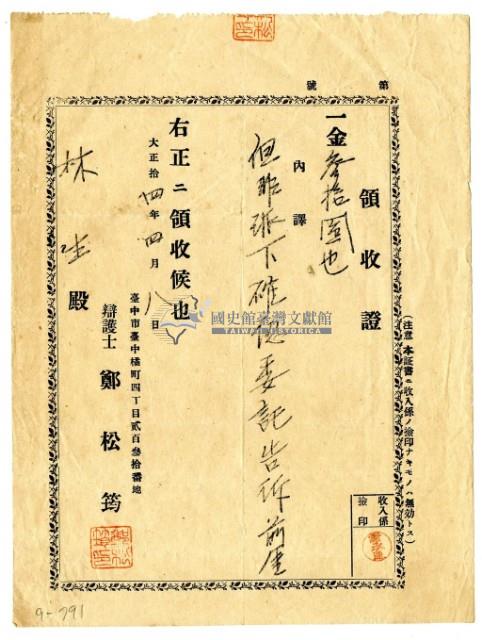 第　號
(注意 本証書ニ收入係ノ撿印ナキモノハ無効トス)
領收證
一金參拾圓也
內譯
但昨 下確認委託告訴前金
右正ニ領收候也
大正拾四年四月八日
臺中市臺中橘町四丁目貳百參拾番地
辯護士 鄭松筠
林 生 殿
收入係
撿印
國史館臺灣文獻館
TAIWAN HISTORICA
9-791